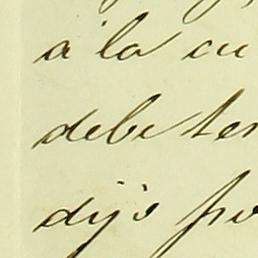 á la cu
debe ten
dijo po